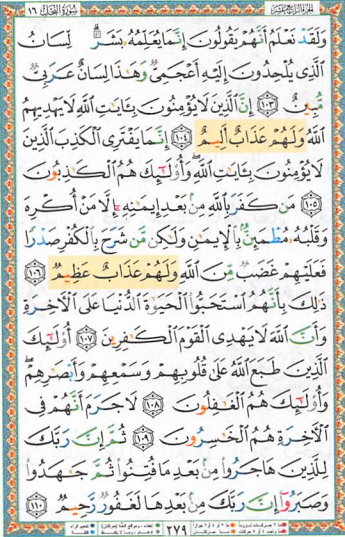 سورة النحل ١٦
وَلَقَدْ نَعْلَمُ أَنَّهُمْ يَقُولُونَ إِنَّمَا يُعَلِّمُهُۥ بَشَرٌۗ لِّسَانُ
ٱلَّذِى يُلْحِدُونَ إِلَيْهِ أَعْجَمِىٌّ وَهَٰذَا لِسَانٌ عَرَبِىٌّ
مُّبِينٌ ١٠٣ إِنَّ ٱلَّذِينَ لَا يُؤْمِنُونَ بِـَٔايَٰتِ ٱللَّهِ لَا يَهْدِيهِمُ
ٱللَّهُ وَلَهُمْ عَذَابٌ أَلِيمٌ ١٠٤ إِنَّمَا يَفْتَرِى ٱلْكَذِبَ ٱلَّذِينَ
لَا يُؤْمِنُونَ بِـَٔايَٰتِ ٱللَّهِۖ وَأُو۟لَٰٓئِكَ هُمُ ٱلْكَٰذِبُونَ
١٠٥ مَن كَفَرَ بِٱللَّهِ مِنۢ بَعْدِ إِيمَٰنِهِۦٓ إِلَّا مَنْ أُكْرِهَ
وَقَلْبُهُۥ مُطْمَئِنٌّۢ بِٱلْإِيمَٰنِ وَلَٰكِن مَّن شَرَحَ بِٱلْكُفْرِ صَدْرًا
فَعَلَيْهِمْ غَضَبٌ مِّنَ ٱللَّهِ وَلَهُمْ عَذَابٌ عَظِيمٌ ١٠٦
ذَٰلِكَ بِأَنَّهُمُ ٱسْتَحَبُّوا۟ ٱلْحَيَوٰةَ ٱلدُّنْيَا عَلَى ٱلْءَاخِرَةِ
وَأَنَّ ٱللَّهَ لَا يَهْدِى ٱلْقَوْمَ ٱلْكَٰفِرِينَ ١٠٧ أُو۟لَٰٓئِكَ
ٱلَّذِينَ طَبَعَ ٱللَّهُ عَلَىٰ قُلُوبِهِمْ وَسَمْعِهِمْ وَأَبْصَٰرِهِمْۖ
وَأُو۟لَٰٓئِكَ هُمُ ٱلْغَٰفِلُونَ ١٠٨ لَا جَرَمَ أَنَّهُمْ فِى
ٱلْءَاخِرَةِ هُمُ ٱلْخَٰسِرُونَ ١٠٩ ثُمَّ إِنَّ رَبَّكَ
لِلَّذِينَ هَاجَرُوا۟ مِنۢ بَعْدِ مَا فُتِنُوا۟ ثُمَّ جَٰهَدُوا۟
وَصَبَرُوٓا۟ إِنَّ رَبَّكَ مِنۢ بَعْدِهَا لَغَفُورٌ رَّحِيمٌ ١١٠
٢٧٩